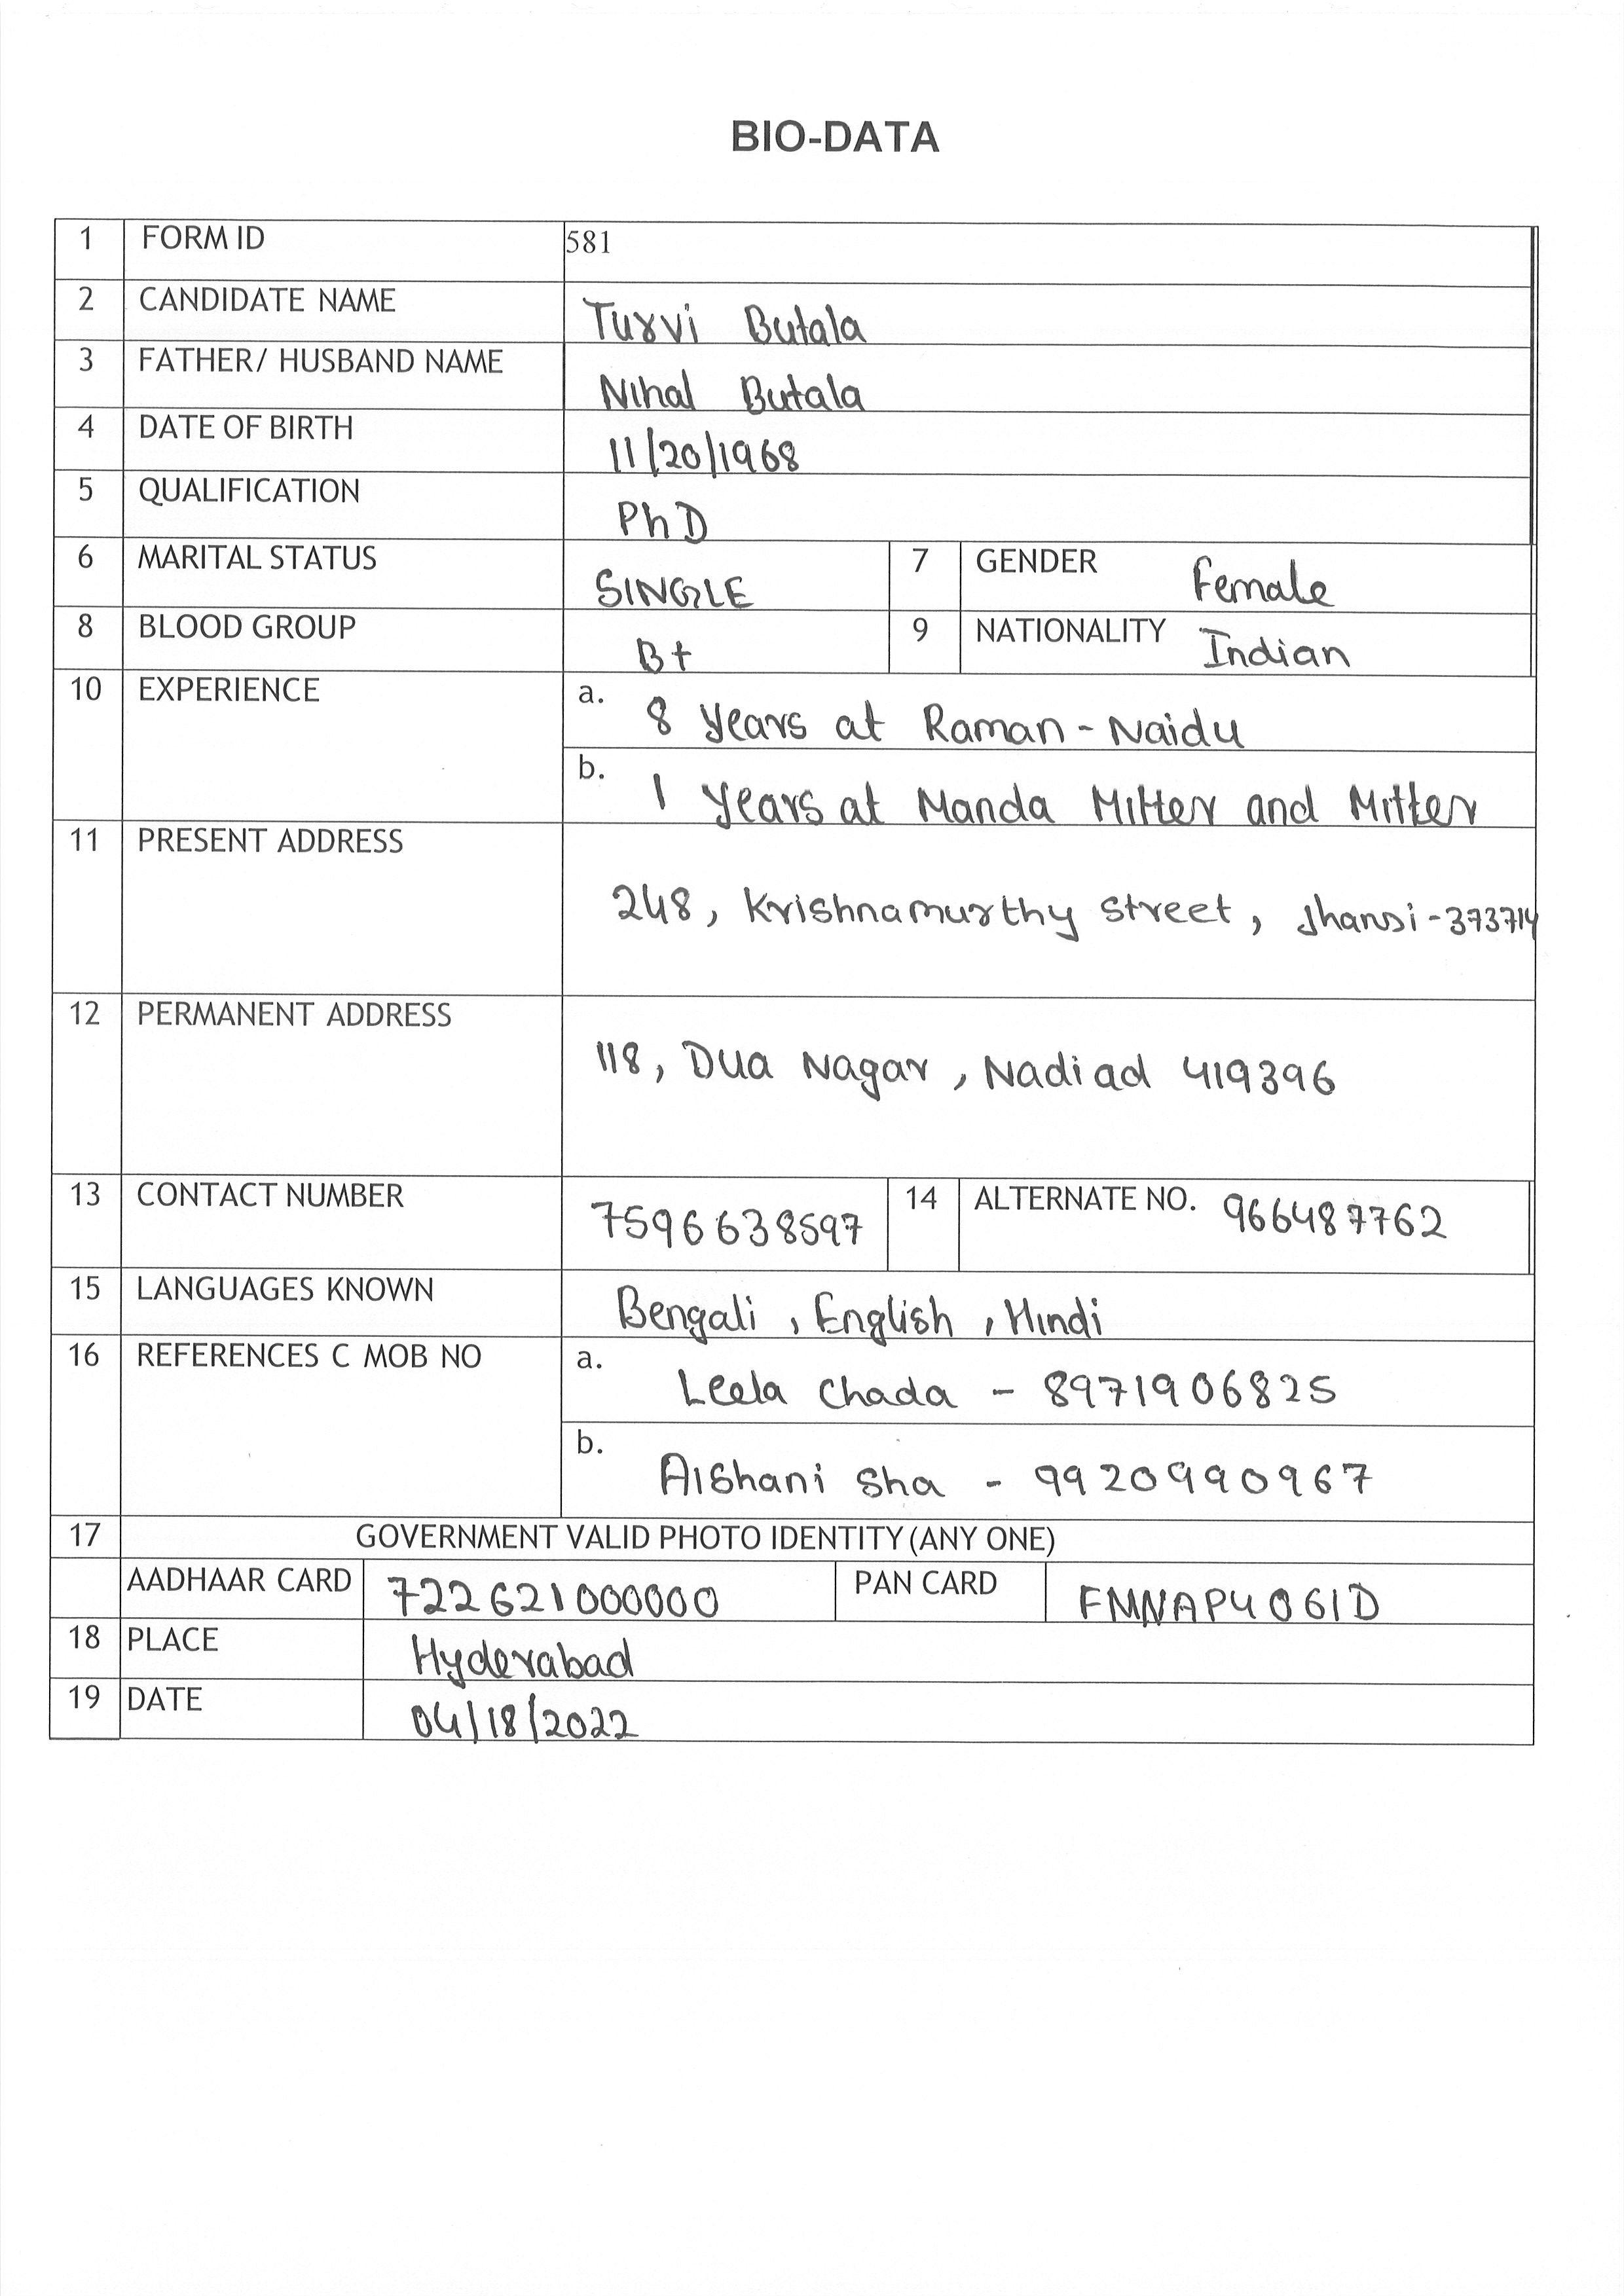 BIO-DATA
1 FORM ID 581
2 CANDIDATE NAME Turvi Butala
3 FATHER/ HUSBAND NAME Nihal Butala
4 DATE OF BIRTH 11/20/1968
5 QUALIFICATION PhD
6 MARITAL STATUS SINGLE 7 GENDER Female
8 BLOOD GROUP B+ 9 NATIONALITY Indian
10 EXPERIENCE a. 8 years at Raman-Naidu
b. 1 years at Manda Mitter and Mitter
11 PRESENT ADDRESS
248, Krishnamurthy street, Jhansi-373714
12 PERMANENT ADDRESS
118, Dua Nagar, Nadiad 419396
13 CONTACT NUMBER 7596638597 14 ALTERNATE NO. 966487762
15 LANGUAGES KNOWN Bengali, English, Hindi
16 REFERENCES C MOB NO a. Leela Chada - 8971906825
b. Aishani Sha - 9920990967
17 GOVERNMENT VALID PHOTO IDENTITY (ANY ONE)
AADHAAR CARD 722621000000 PAN CARD FMNAP4061D
18 PLACE Hyderabad
19 DATE 04/18/2022